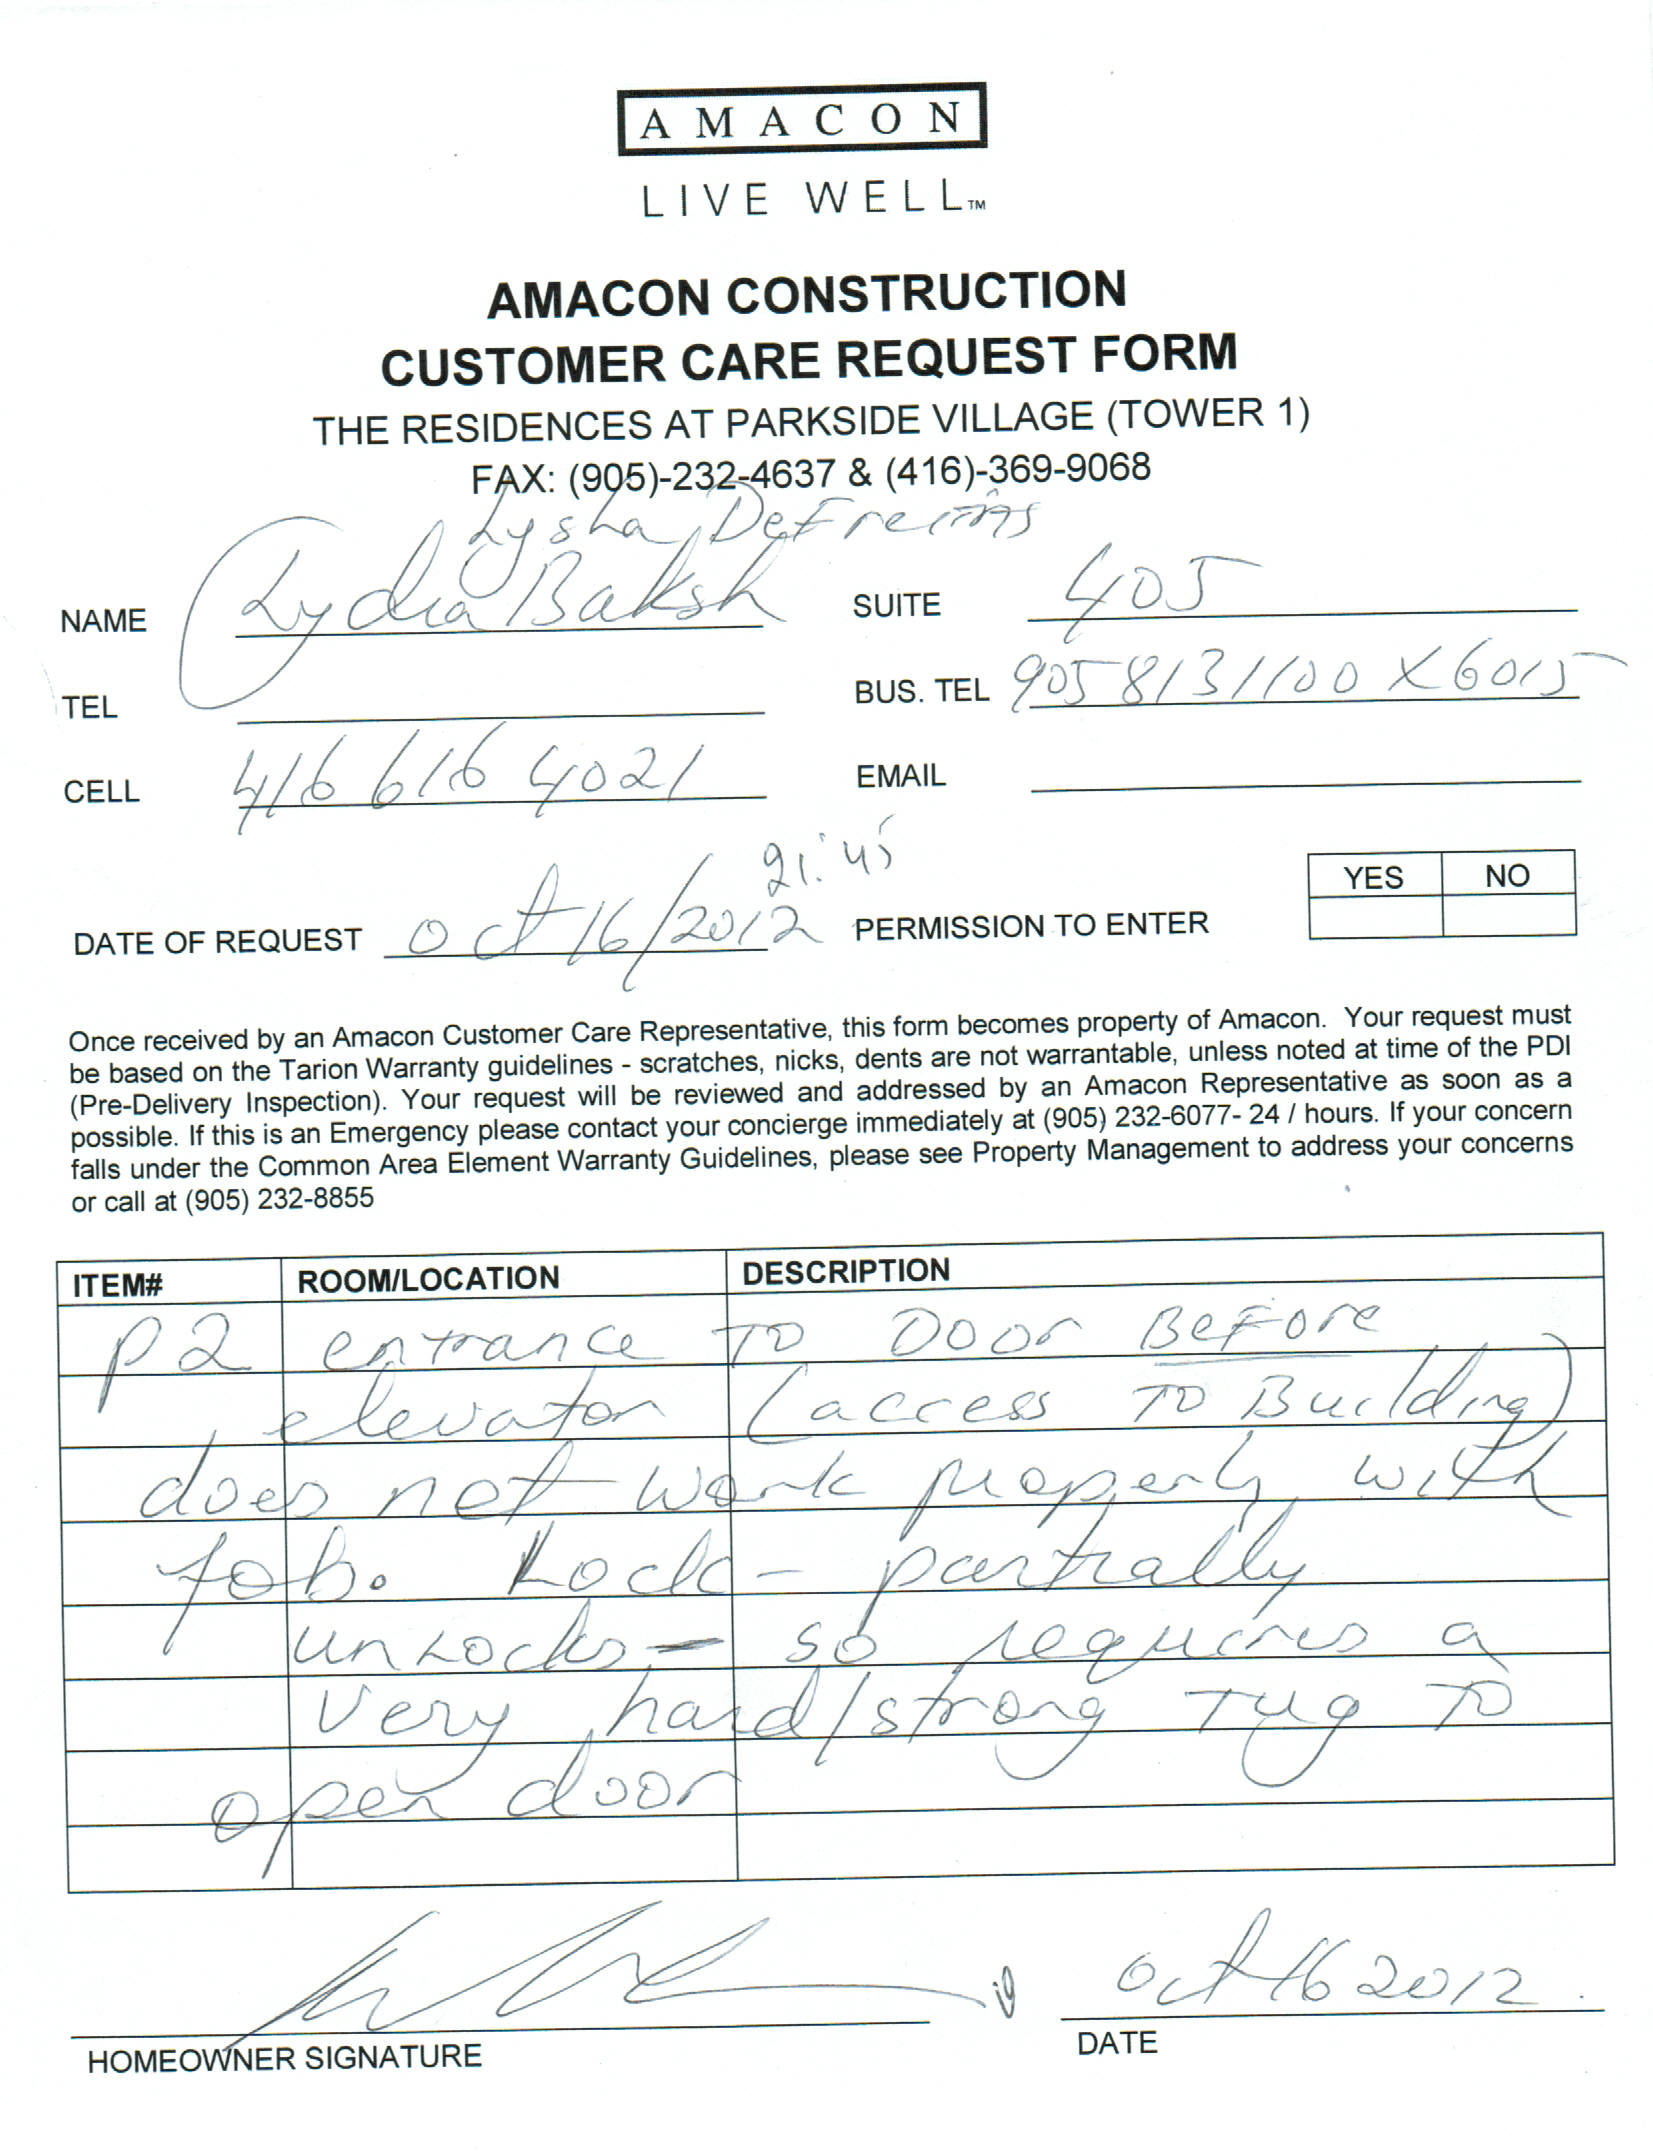 AMACON
LIVE WELL™
AMACON CONSTRUCTION
CUSTOMER CARE REQUEST FORM
THE RESIDENCES AT PARKSIDE VILLAGE (TOWER 1)
FAX: (905)-232-4637 & (416)-369-9068
Lysha DeFreitas
NAME Lydia Baksh SUITE 405
TEL BUS. TEL 905 813 1100 X 6015
CELL 416 616 4021 EMAIL
21:45
YES NO
DATE OF REQUEST Oct 16/2012 PERMISSION TO ENTER
Once received by an Amacon Customer Care Representative, this form becomes property of Amacon. Your request must
be based on the Tarion Warranty guidelines - scratches, nicks, dents are not warrantable, unless noted at time of the PDI
(Pre-Delivery Inspection). Your request will be reviewed and addressed by an Amacon Representative as soon as a
possible. If this is an Emergency please contact your concierge immediately at (905) 232-6077- 24 / hours. If your concern
falls under the Common Area Element Warranty Guidelines, please see Property Management to address your concerns
or call at (905) 232-8855
ITEM# ROOM/LOCATION DESCRIPTION
P2 entrance TO Door BeFore
elevator (access TO Building)
does not work properly with
fob. Lock - partially
unlocks - so requires a
very hard/strong Tug TO
open door
Oct 16 2012.
HOMEOWNER SIGNATURE DATE